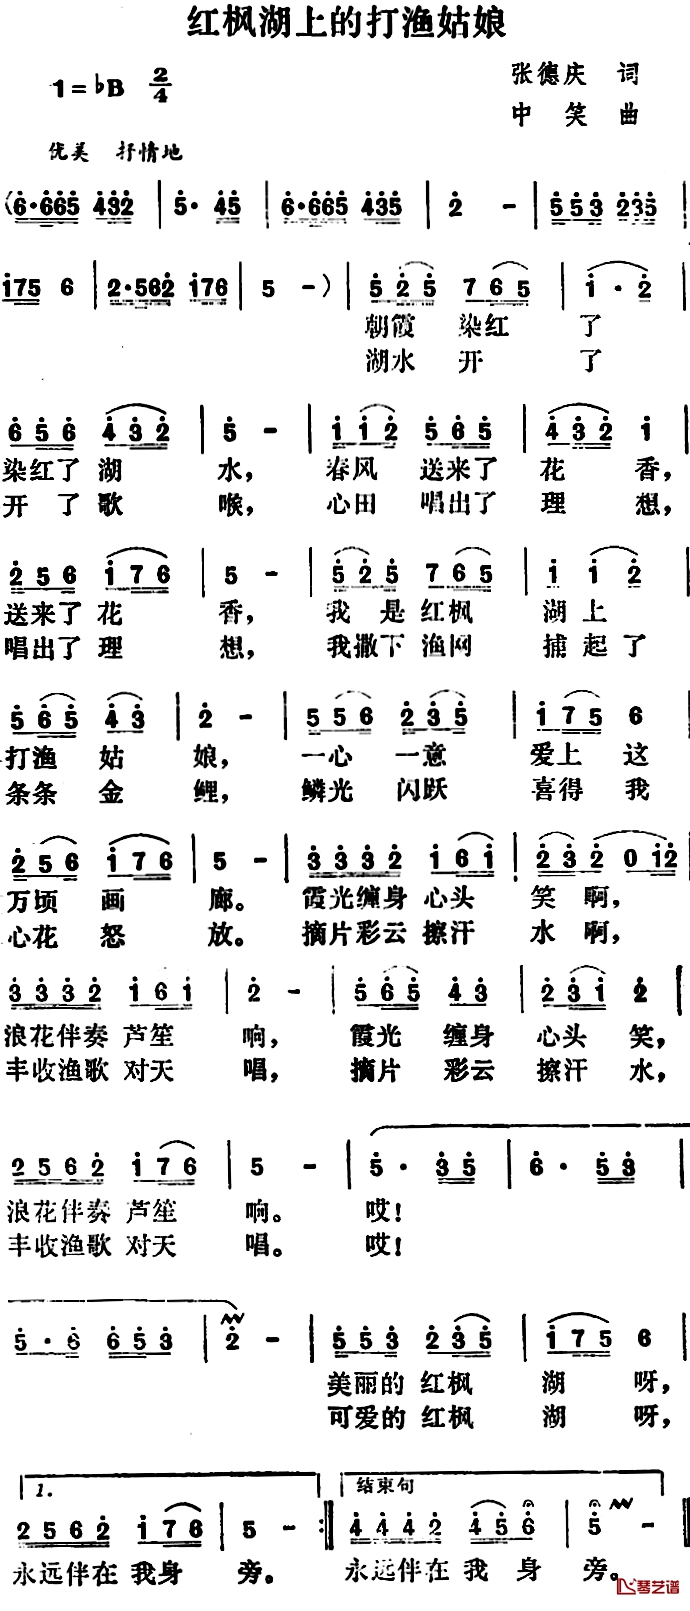 红枫湖上的打渔姑娘
1=♭B 2/4
张德庆 词
中笑 曲
优美 抒情地
(6·665 432 | 5· 45 | 6·665 435 | 2 - | 553 235 |
175 6 | 2·562 176 | 5 -) | 525 765 | 1·2 |
朝霞 染红 了
湖水 开 了
656 432 | 5 - | 112 565 | 432 1 |
染红了湖 水， 春风 送来了 花 香，
开了歌 喉， 心田 唱出了 理 想，
256 176 | 5 - | 525 765 | 1 12 |
送来了花 香， 我是红枫 湖上
唱出了理 想， 我撒下渔网 捕起了
565 43 | 2 - | 556 235 | 175 6 |
打渔 姑 娘， 一心 一意 爱上 这
条条 金 鲤， 鳞光 闪跃 喜得 我
256 176 | 5 - | 3332 161 | 232 012 |
万顷 画 廊。 霞光缠身 心头 笑啊，
心花 怒 放。 摘片彩云 擦汗 水啊，
3332 161 | 2 - | 565 43 | 231 2 |
浪花伴奏 芦笙 响， 霞光 缠身 心头 笑，
丰收渔歌 对天 唱， 摘片 彩云 擦汗 水，
2562 176 | 5 - | 5· 35 | 6· 53 |
浪花伴奏 芦笙 响。 哎！
丰收渔歌 对天 唱。 哎！
5·6 653 | 2 - | 553 235 | 175 6 |
美丽的 红枫 湖 呀，
可爱的 红枫 湖 呀，
1. 结束句
2562 176 | 5 - :‖ 4442 456 | 5 - ‖
永远伴在 我身 旁。 永远伴在 我 身 旁。
琴艺谱